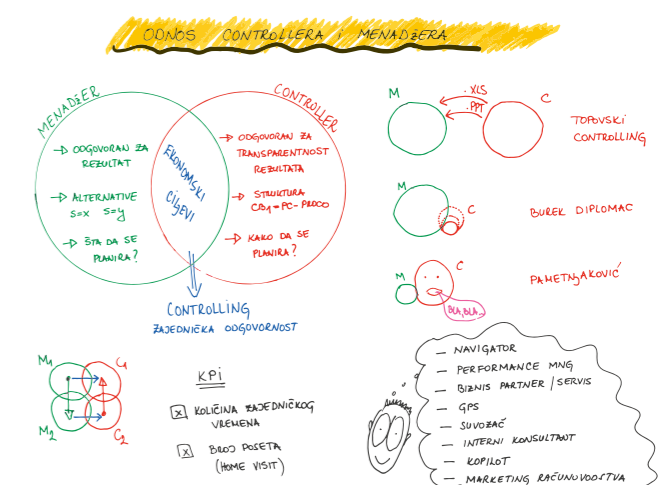 ODNOS CONTROLLERA i MENADŽERA
MENADŽER
→ ODGOVORAN ZA
REZULTAT
→ ALTERNATIVE
S=X S=Y
→ ŠTA DA SE
PLANIRA?
EKONOMSKI
CILJEVI
CONTROLLER
→ ODGOVORAN ZA
TRANSPARENTNOST
REZULTATA
→ STRUKTURA
→ KAKO DA SE
PLANIRA?
CONTROLLING
ZAJEDNIČKA ODGOVORNOST
M
.XLS
.PPT
C
TOPOVSKI
CONTROLLING
M
C
BUREK DIPLOMAC
M
C
BLA, BLA...
PAMETNJAKOVIĆ
M1
C1
M2
C2
KPI
X KOLIČINA ZAJEDNIČKOG
VREMENA
X BROJ POSETA
(HOME VISIT)
— NAVIGATOR
— PERFORMANCE MNG
— BIZNIS PARTNER / SERVIS
— GPS
— SUVOZAČ
— INTERNI KONSULTANT
— KOPILOT
— MARKETING RAČUNOVODSTVA